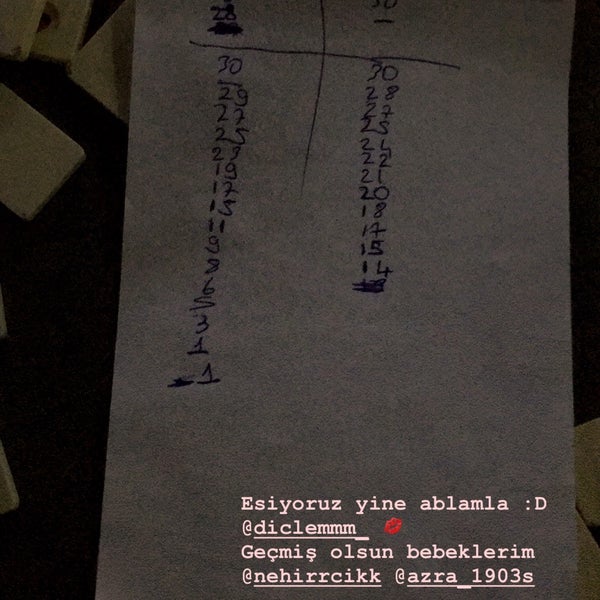 28
30
29
27
25
23
19
17
15
11
9
8
6
5
3
1
-1
30
28
27
25
24
22
21
20
18
17
15
14
Esiyoruz yine ablamla :D
@diclemmm_ 💋
Geçmiş olsun bebeklerim
@nehirrcikk @azra_1903s